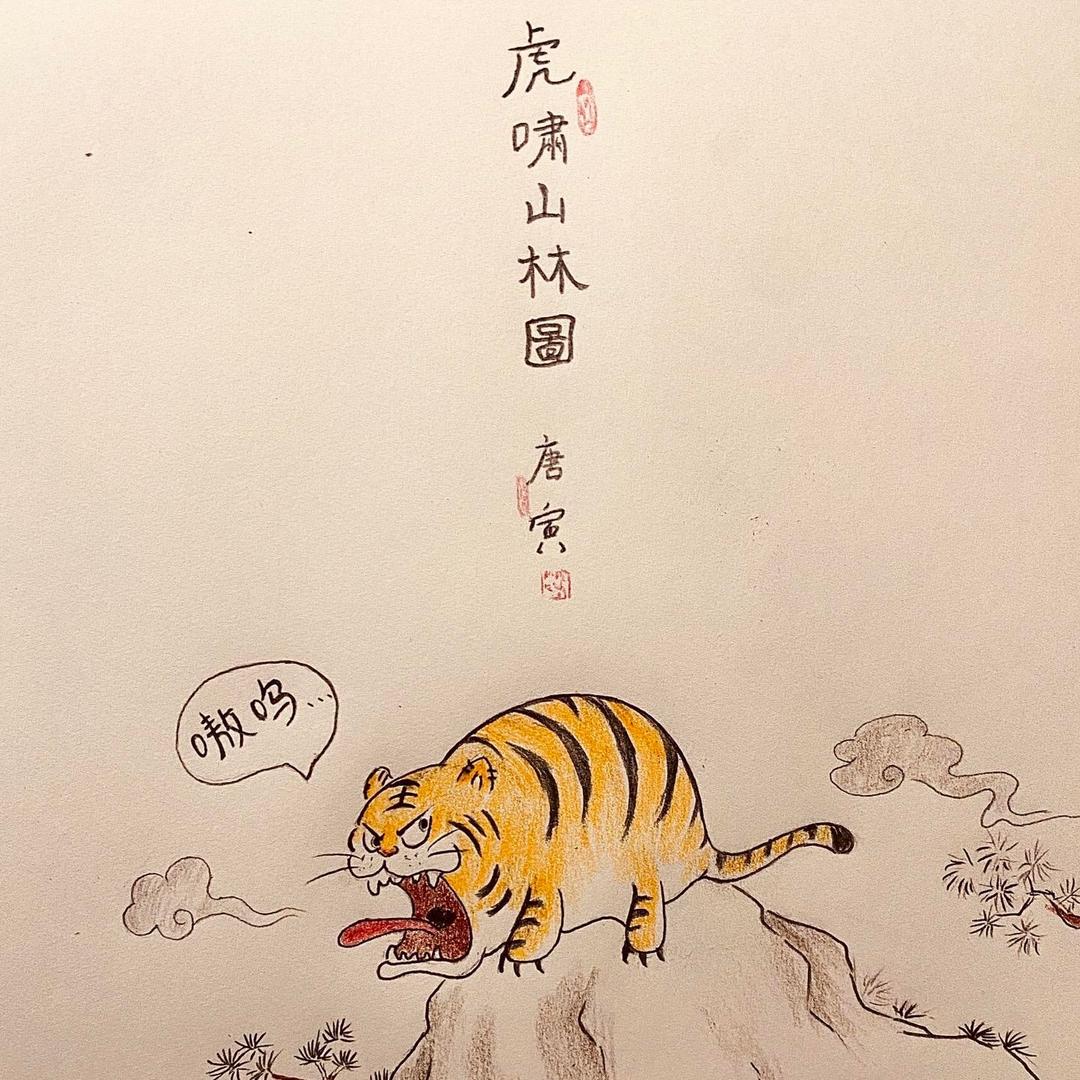 虎啸山林圖
唐寅
嗷呜...